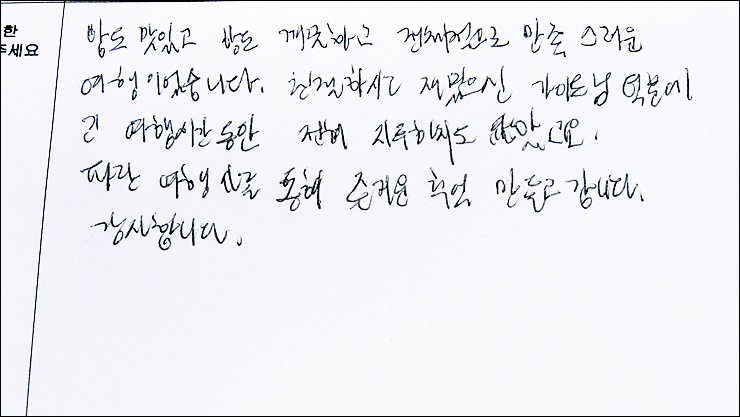 한
주세요
밥도 맛있고 방도 깨끗하고 전체적으로 만족 스러운
여행이었습니다. 친절하시고 재밌으신 가이드님 덕분에
긴 여행시간동안 전혀 지루하지도 않았고요.
파란 여행사를 통해 즐거운 추억 만들고 갑니다.
감사합니다.